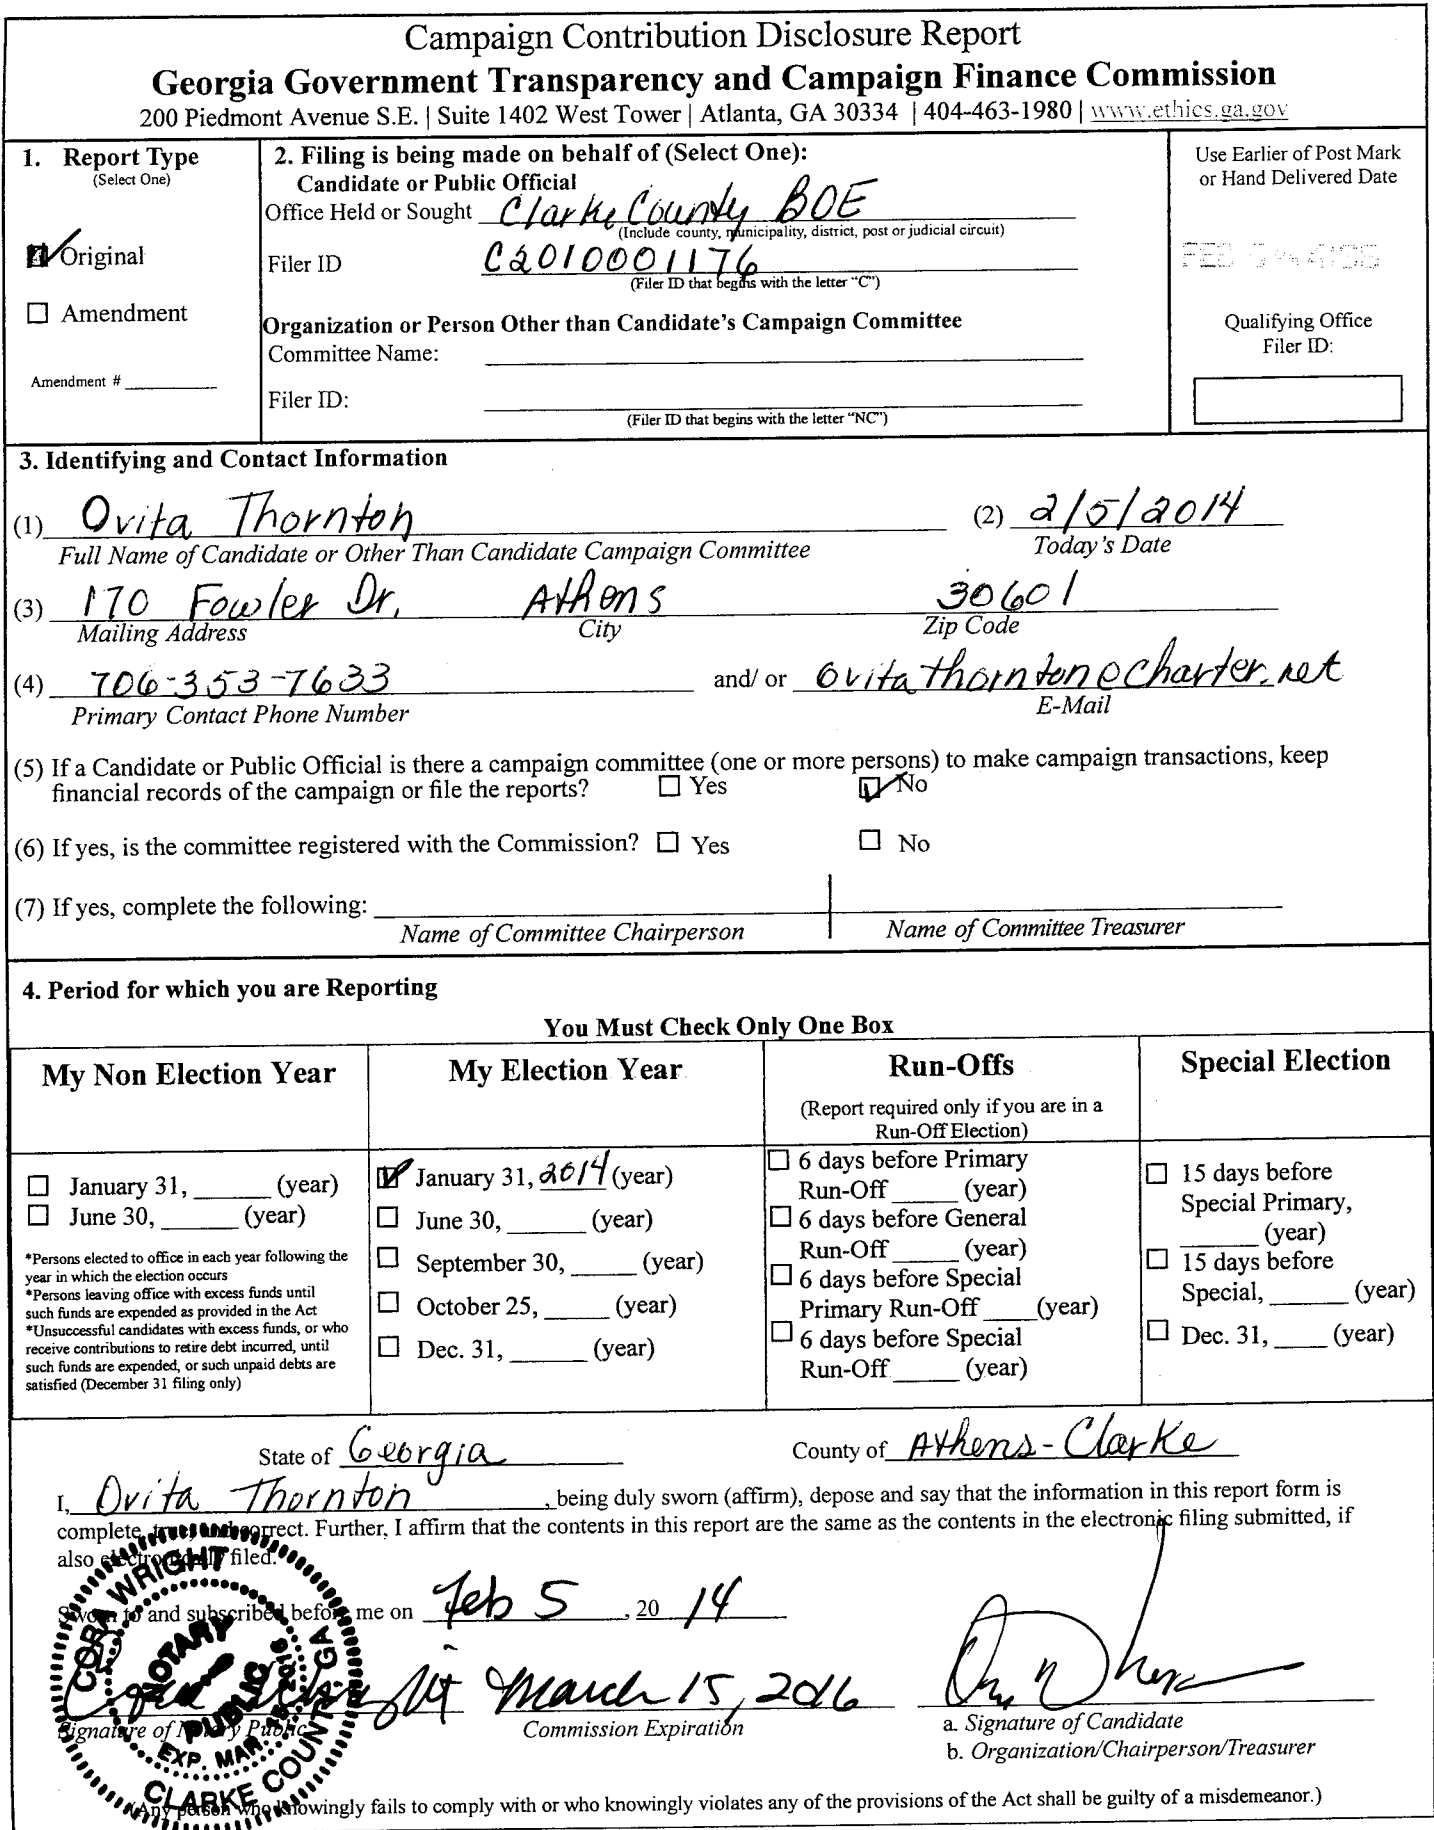 Campaign Contribution Disclosure Report
Georgia Government Transparency and Campaign Finance Commission
200 Piedmont Avenue S.E. | Suite 1402 West Tower | Atlanta, GA 30334 | 404-463-1980 | www.ethics.ga.gov
1. Report Type
(Select One)
Original
Amendment
Amendment #
2. Filing is being made on behalf of (Select One):
Candidate or Public Official
Office Held or Sought Clarke County BOE
(Include county, municipality, district, post or judicial circuit)
Filer ID C2010001176
(Filer ID that begins with the letter "C")
Organization or Person Other than Candidate's Campaign Committee
Committee Name:
Filer ID:
(Filer ID that begins with the letter "NC")
Use Earlier of Post Mark
or Hand Delivered Date
FEB
Qualifying Office
Filer ID:
3. Identifying and Contact Information
(1) Ovita Thornton (2) 2/5/2014
Full Name of Candidate or Other Than Candidate Campaign Committee Today's Date
(3) 170 Fowler Dr. Athens 30601
Mailing Address City Zip Code
(4) 706-353-7633 and/ or ovitathornton@charter.net
Primary Contact Phone Number E-Mail
(5) If a Candidate or Public Official is there a campaign committee (one or more persons) to make campaign transactions, keep
financial records of the campaign or file the reports? Yes No
(6) If yes, is the committee registered with the Commission? Yes No
(7) If yes, complete the following:
Name of Committee Chairperson Name of Committee Treasurer
4. Period for which you are Reporting
You Must Check Only One Box
My Non Election Year
January 31, (year)
June 30, (year)
*Persons elected to office in each year following the
year in which the election occurs
*Persons leaving office with excess funds until
such funds are expended as provided in the Act
*Unsuccessful candidates with excess funds, or who
receive contributions to retire debt incurred, until
such funds are expended, or such unpaid debts are
satisfied (December 31 filing only)
My Election Year
January 31, 2014 (year)
June 30, (year)
September 30, (year)
October 25, (year)
Dec. 31, (year)
Run-Offs
(Report required only if you are in a
Run-Off Election)
6 days before Primary
Run-Off (year)
6 days before General
Run-Off (year)
6 days before Special
Primary Run-Off (year)
6 days before Special
Run-Off (year)
Special Election
15 days before
Special Primary,
(year)
15 days before
Special, (year)
Dec. 31, (year)
State of Georgia County of Athens-Clarke
I, Ovita Thornton, being duly sworn (affirm), depose and say that the information in this report form is
complete, true and correct. Further, I affirm that the contents in this report are the same as the contents in the electronic filing submitted, if
also electronically filed.
Sworn to and subscribed before me on Feb 5, 20 14
Cora Wright March 15, 2016
Signature of Notary Public Commission Expiration
a. Signature of Candidate
b. Organization/Chairperson/Treasurer
CORA WRIGHT
NOTARY
PUBLIC
EXP. MAR. 15, 2016
CLARKE COUNTY, GA
(Any person who knowingly fails to comply with or who knowingly violates any of the provisions of the Act shall be guilty of a misdemeanor.)